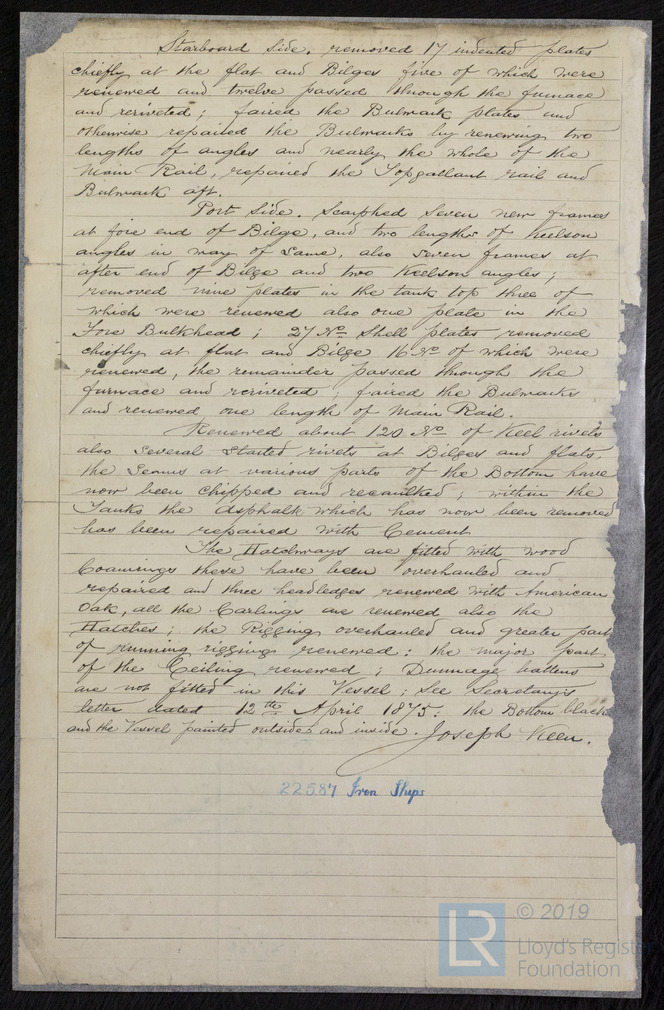 Starboard Side, removed 17 indented plates
chiefly at the flat and Bilges five of which were
renewed and twelve passed through the furnace
and reriveted; faired the Bulwark plates and
otherwise repaired the Bulwarks by renewing two
lengths of angles and nearly the whole of the
Main Rail, repaired the Topgallant rail and
Bulwark aft.
Port Side. Scarphed Seven new frames
at fore end of Bilge, and two lengths of Keelson
angles in way of Same, also Seven frames at
after end of Bilge and two Keelson angles;
removed nine plates in the tank top three of
which were renewed also one plate in the
Fore Bulkhead; 27 No Shell plates removed
chiefly at flat and Bilge 16 No of which were
renewed, the remainder passed through the
furnace and reriveted; faired the Bulwarks
and renewed one length of Main Rail.
Renewed about 120 No of Keel rivets
also Several Started rivets at Bilges and flats.
the Seams at various parts of the Bottom have
now been chipped and recaulked; within the
Tanks the Asphalt which has now been removed
has been repaired with Cement
The Hatchways are fitted with wood
Coamings these have been overhauled and
repaired and three headledges renewed with American
Oak, all the Carlings are renewed also the
Hatches; the Rigging overhauled and greater part
of running rigging renewed: the major part
of the Ceiling renewed; Dunnage battens
are not fitted in this Vessel; See Secretarys
letter dated 12th April 1875. the Bottom black
and the Vessel painted outside and inside. Joseph Keen.
22587 Iron Ships
LR © 2019
Lloyd's Register
Foundation